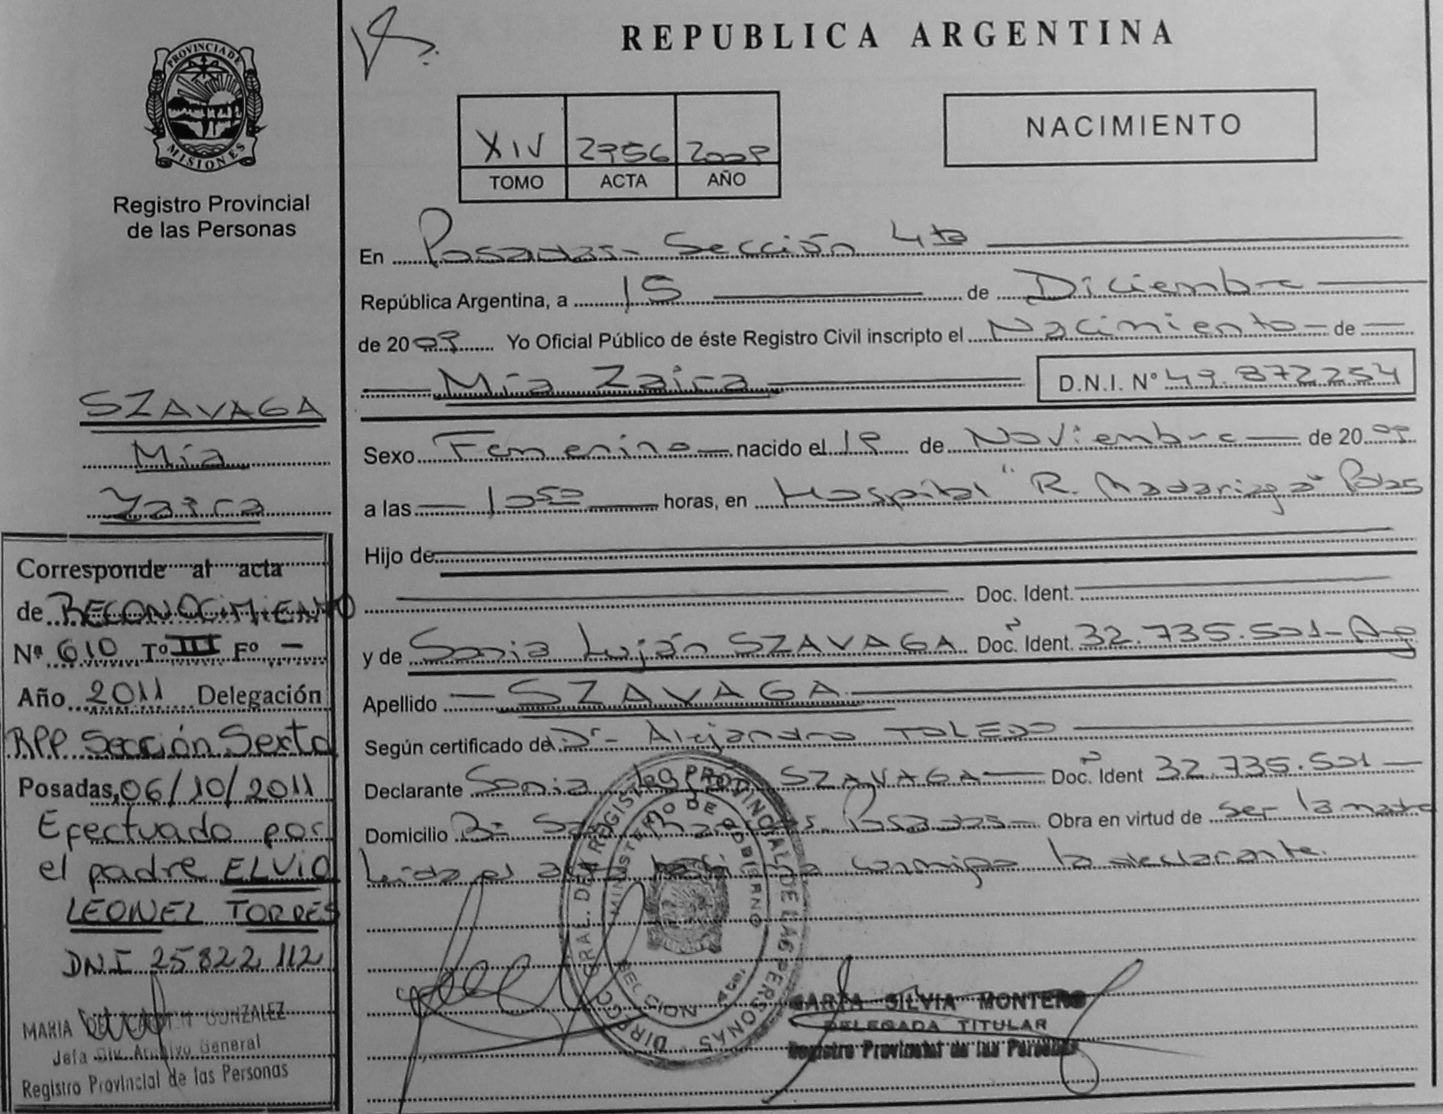 PROVINCIA DE
MISIONES
Registro Provincial
de las Personas
SZAVAGA
Mía
Zaira
Corresponde al acta
de RECONOCIMIENTO
Nº 610 Tº III Fº -
Año 2011 Delegación
RPP Sección Sexta
Posadas, 06/10/2011
Efectuado por
el padre ELVIO
LEONEL TORRES
DNI 25822112
MARIA GONZALEZ
Jefa Div. Archivo General
Registro Provincial de las Personas
REPUBLICA ARGENTINA
XIV 2956 2009
TOMO ACTA AÑO
NACIMIENTO
En Posadas - Sección 4ta
República Argentina, a 15 de Diciembre
de 2009 Yo Oficial Público de éste Registro Civil inscripto el Nacimiento - de
Mía Zaira D.N.I. Nº 49.872254
Sexo Femenino nacido el 19 de Noviembre de 2009
a las 10 50 horas, en Hospital "R. Madariaga" Pdas
Hijo de
Doc. Ident.
y de Sonia Luján SZAVAGA Doc. Ident. 32.735.501 - Arg
Apellido SZAVAGA
Según certificado de Dr. Alejandro TOLEDO
Declarante Sonia SZAVAGA Doc. Ident 32.735.501
Domicilio Bº Posadas Obra en virtud de ser la madre
Leída el acta conmigo la declarante.
DIRECC. GRAL. DEL REGISTRO PROVINCIAL DE LAS PERSONAS
MINISTERIO DE GOBIERNO
SECCION 4ta.
SILVIA MONTERO
DELEGADA TITULAR
Registro Provincial de las Personas